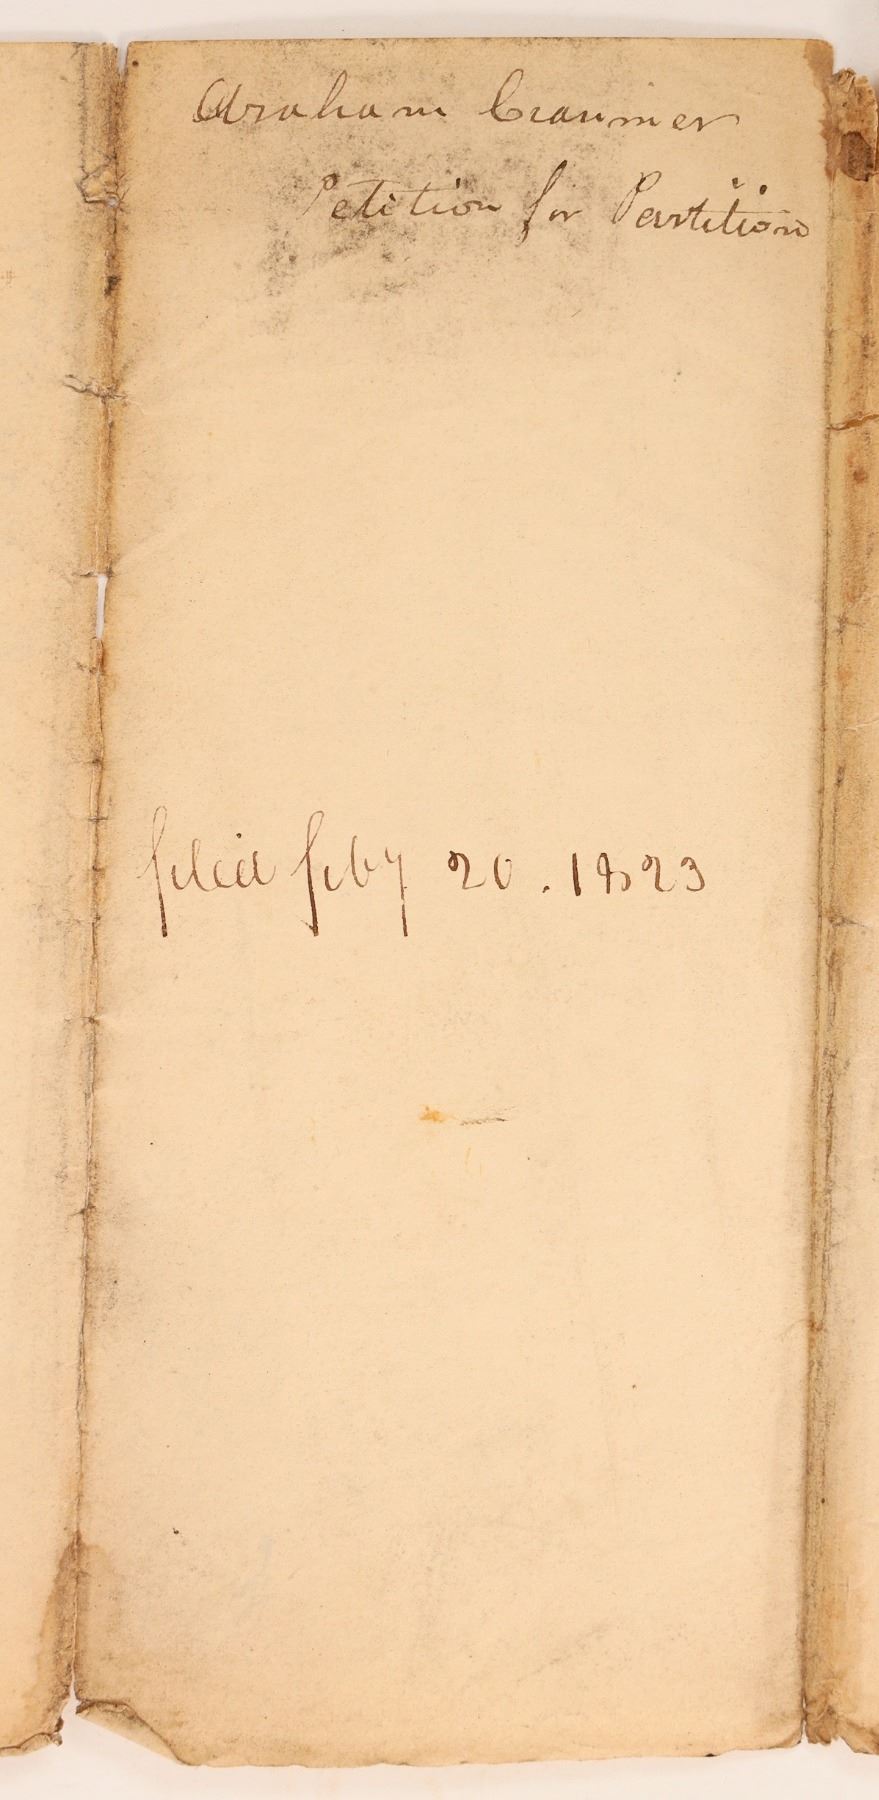 Abraham Craumer
Petition for Partition
filed feby 20. 1823